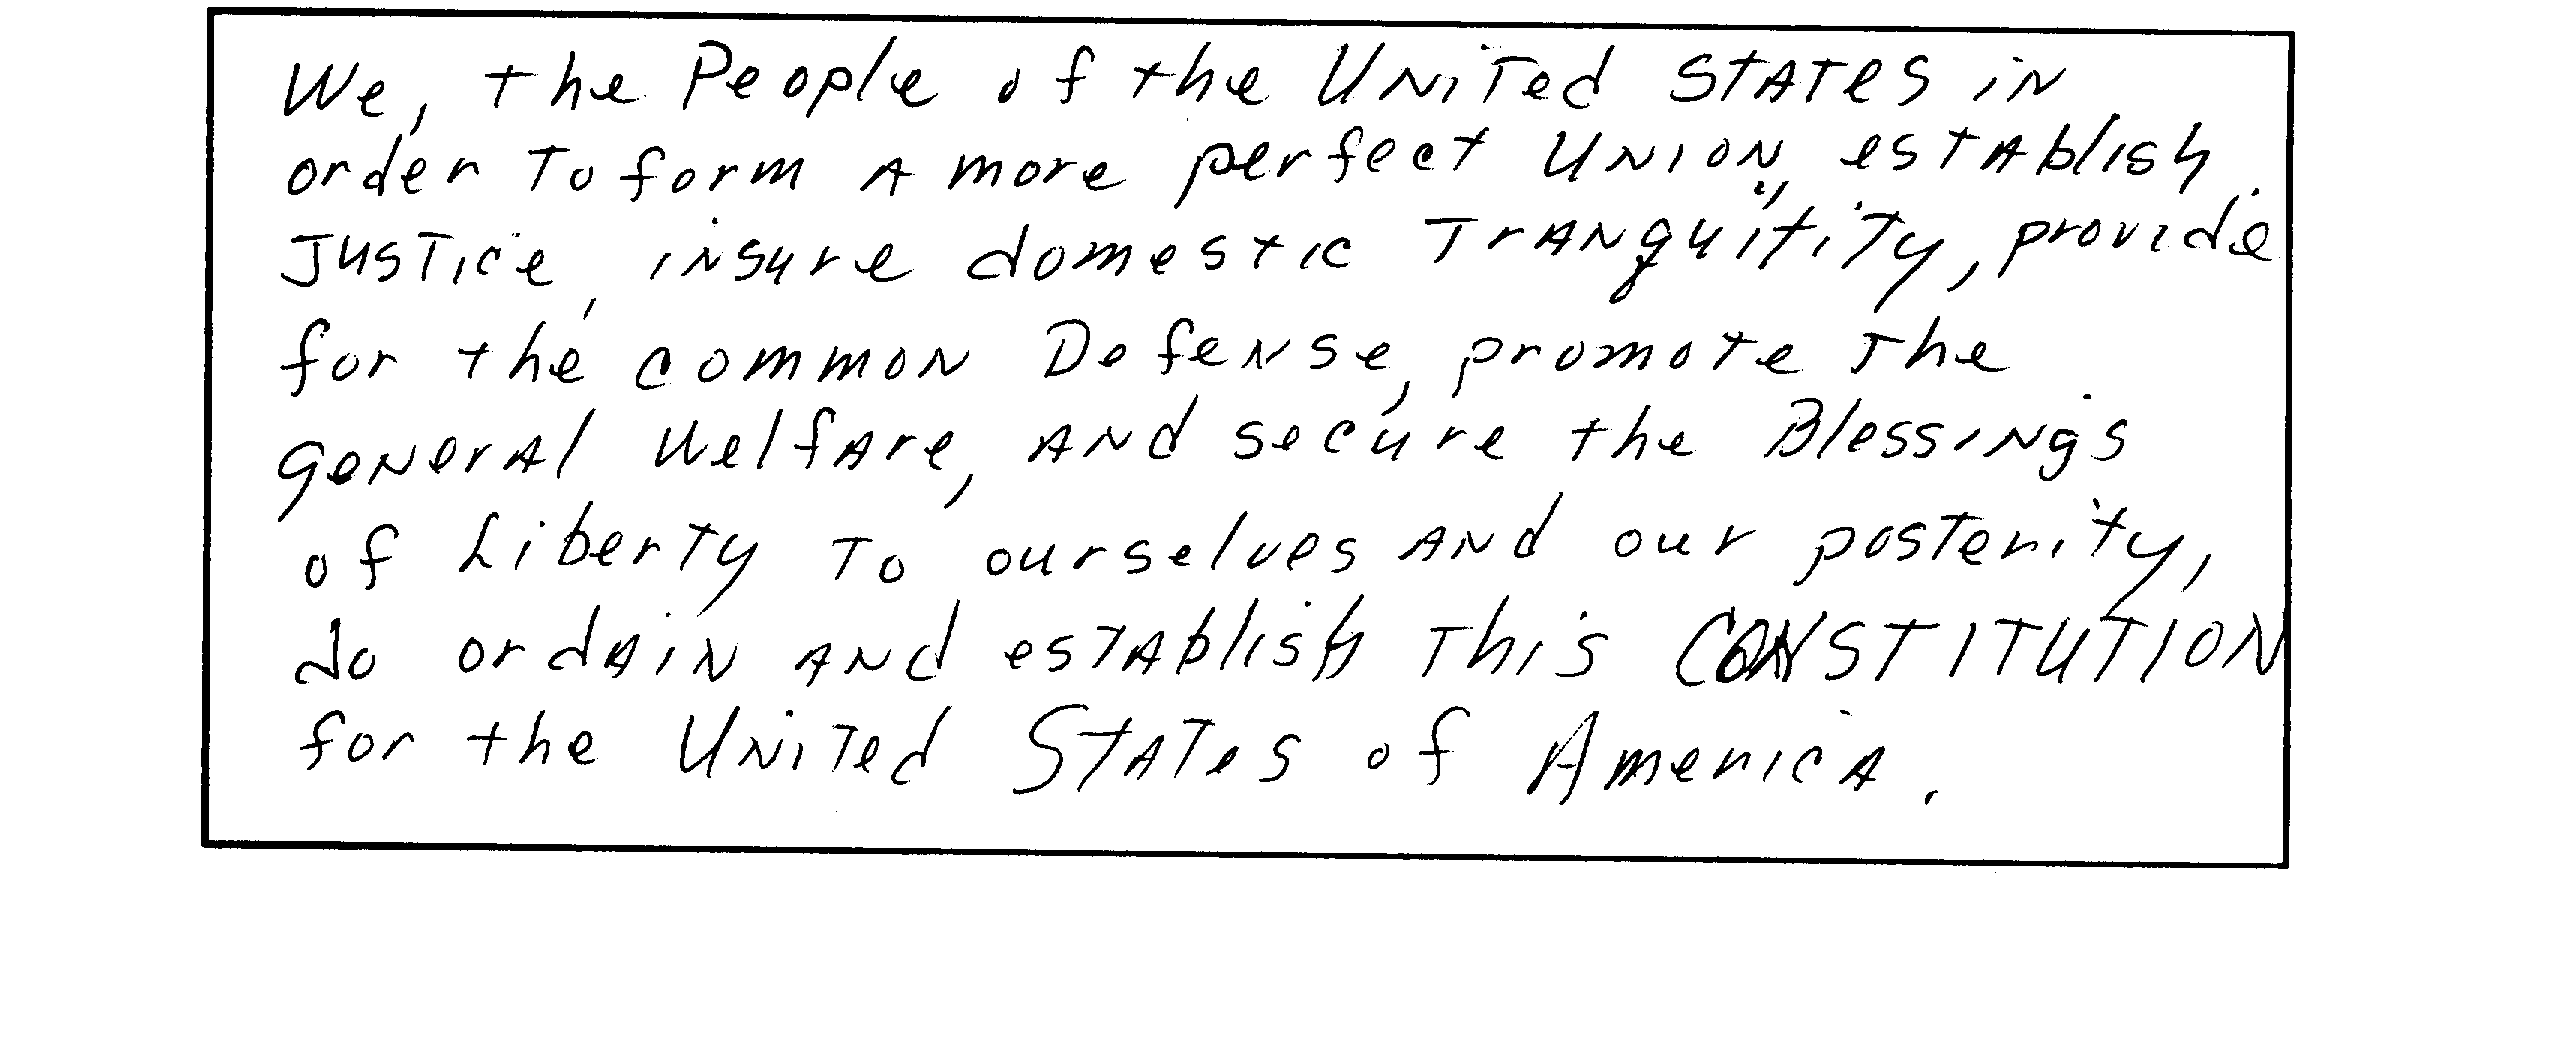 We, the People of the United States in
order to form a more perfect Union, establish
Justice, insure domestic Tranquitity, provide
for the common Defense, promote the
general Welfare, and secure the Blessings
of Liberty to ourselves and our posterity,
do ordain and establish this CONSTITUTION
for the United States of America.